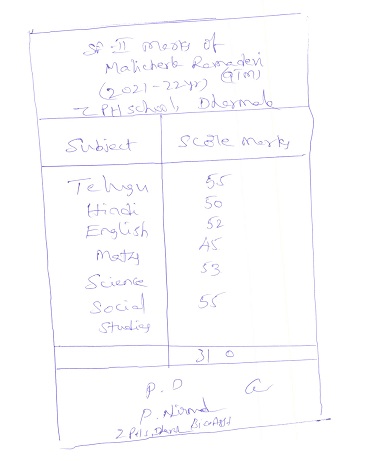 SA-II Marks of
Malicherla Ramadevi
(2021-22yr) (GTM)
ZPHschool, Dharmab
Subject Scale Marks
Telugu 55
Hindi 50
English 52
Maths 45
Science 53
Social 55
Studies
310
P.D
P. Nirmal